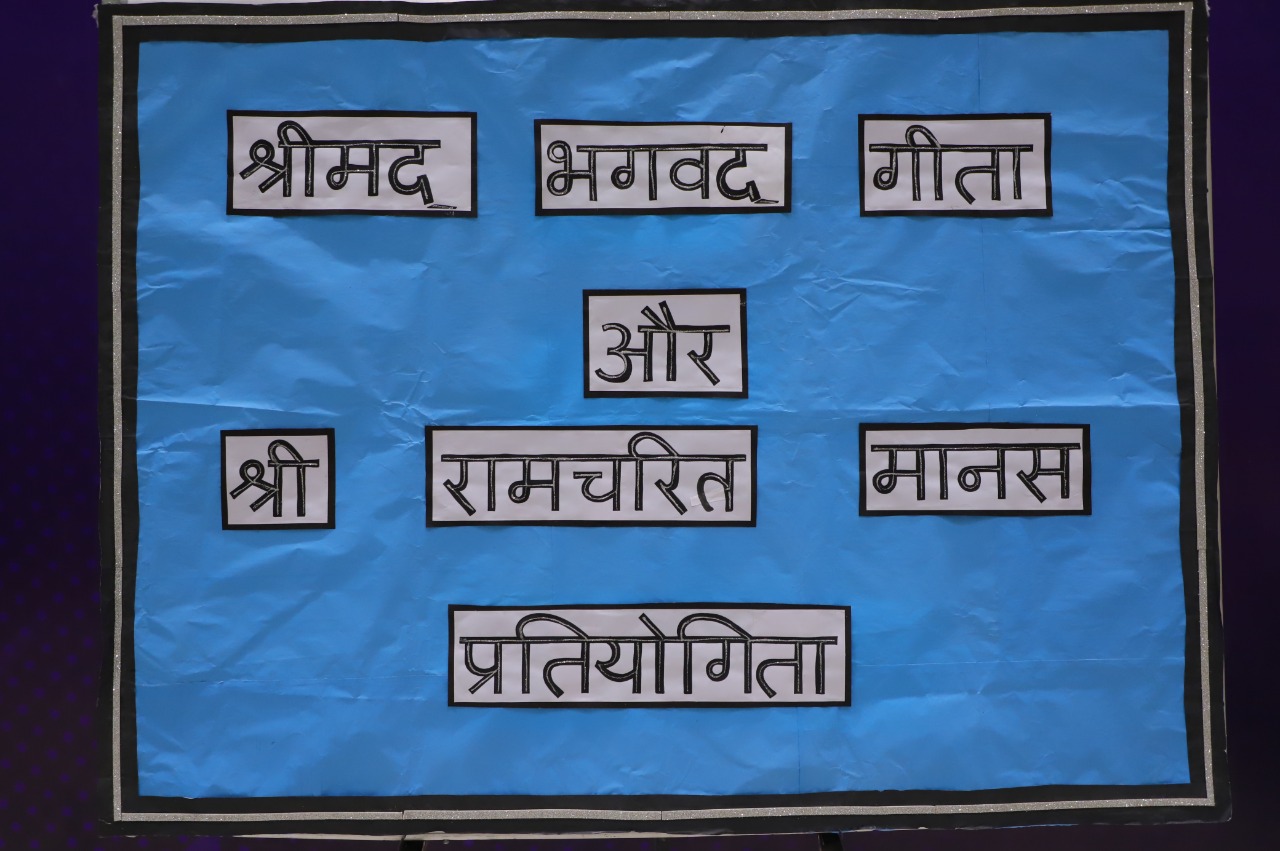 श्रीमद् भगवद् गीता
और
श्री रामचरित मानस
प्रतियोगिता